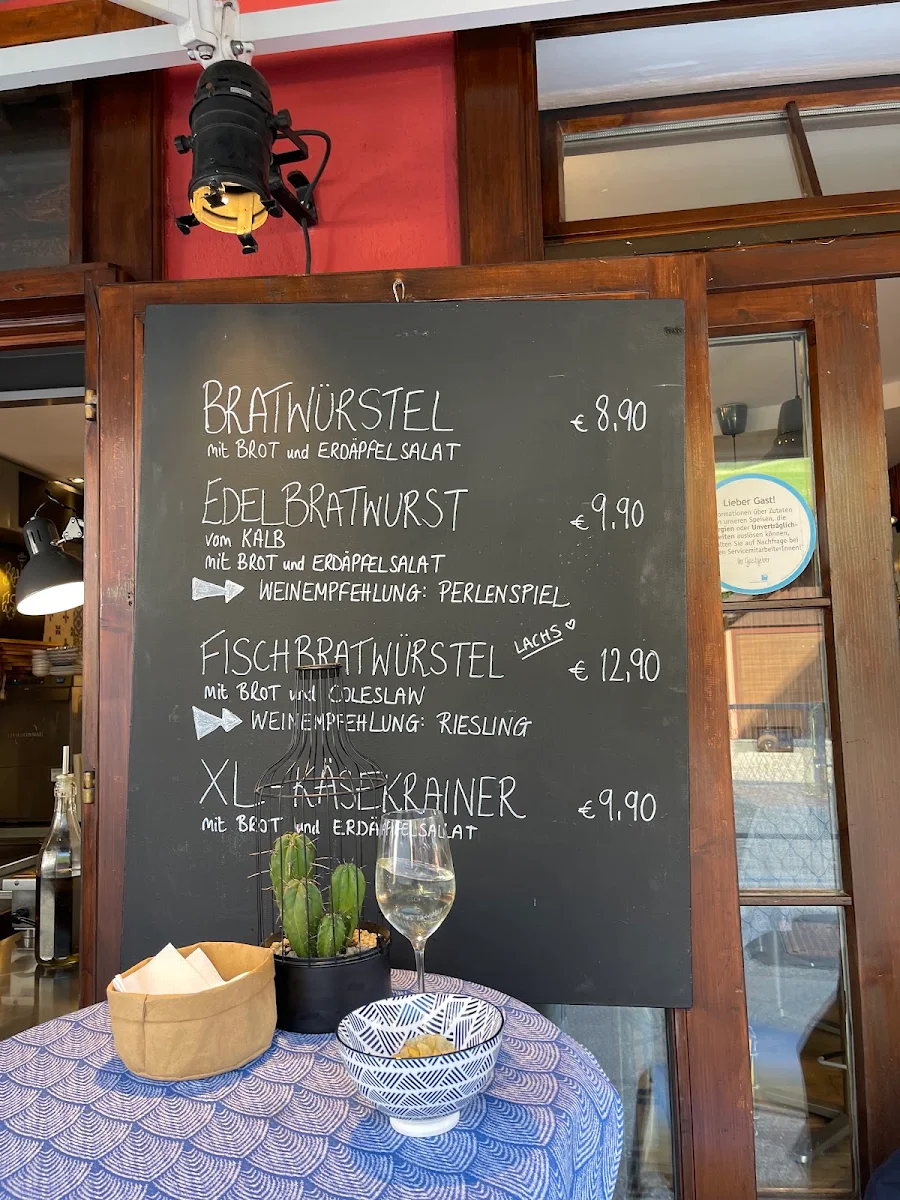 BRATWÜRSTEL € 8,90
mit BROT und ERDÄPFELSALAT
EDELBRATWURST € 9,90
vom KALB
mit BROT und ERDÄPFELSALAT
WEINEMPFEHLUNG: PERLENSPIEL
FISCHBRATWÜRSTEL LACHS € 12,90
mit BROT und COLESLAW
WEINEMPFEHLUNG: RIESLING
XL-KÄSEKRAINER € 9,90
mit BROT und ERDÄPFELSALAT
Lieber Gast!
ormationen über Zutaten
n unseren Speisen, die
rgien oder Unverträglich-
eiten auslösen können,
lten Sie auf Nachfrage bei
en ServicemitarbeiterInnen!